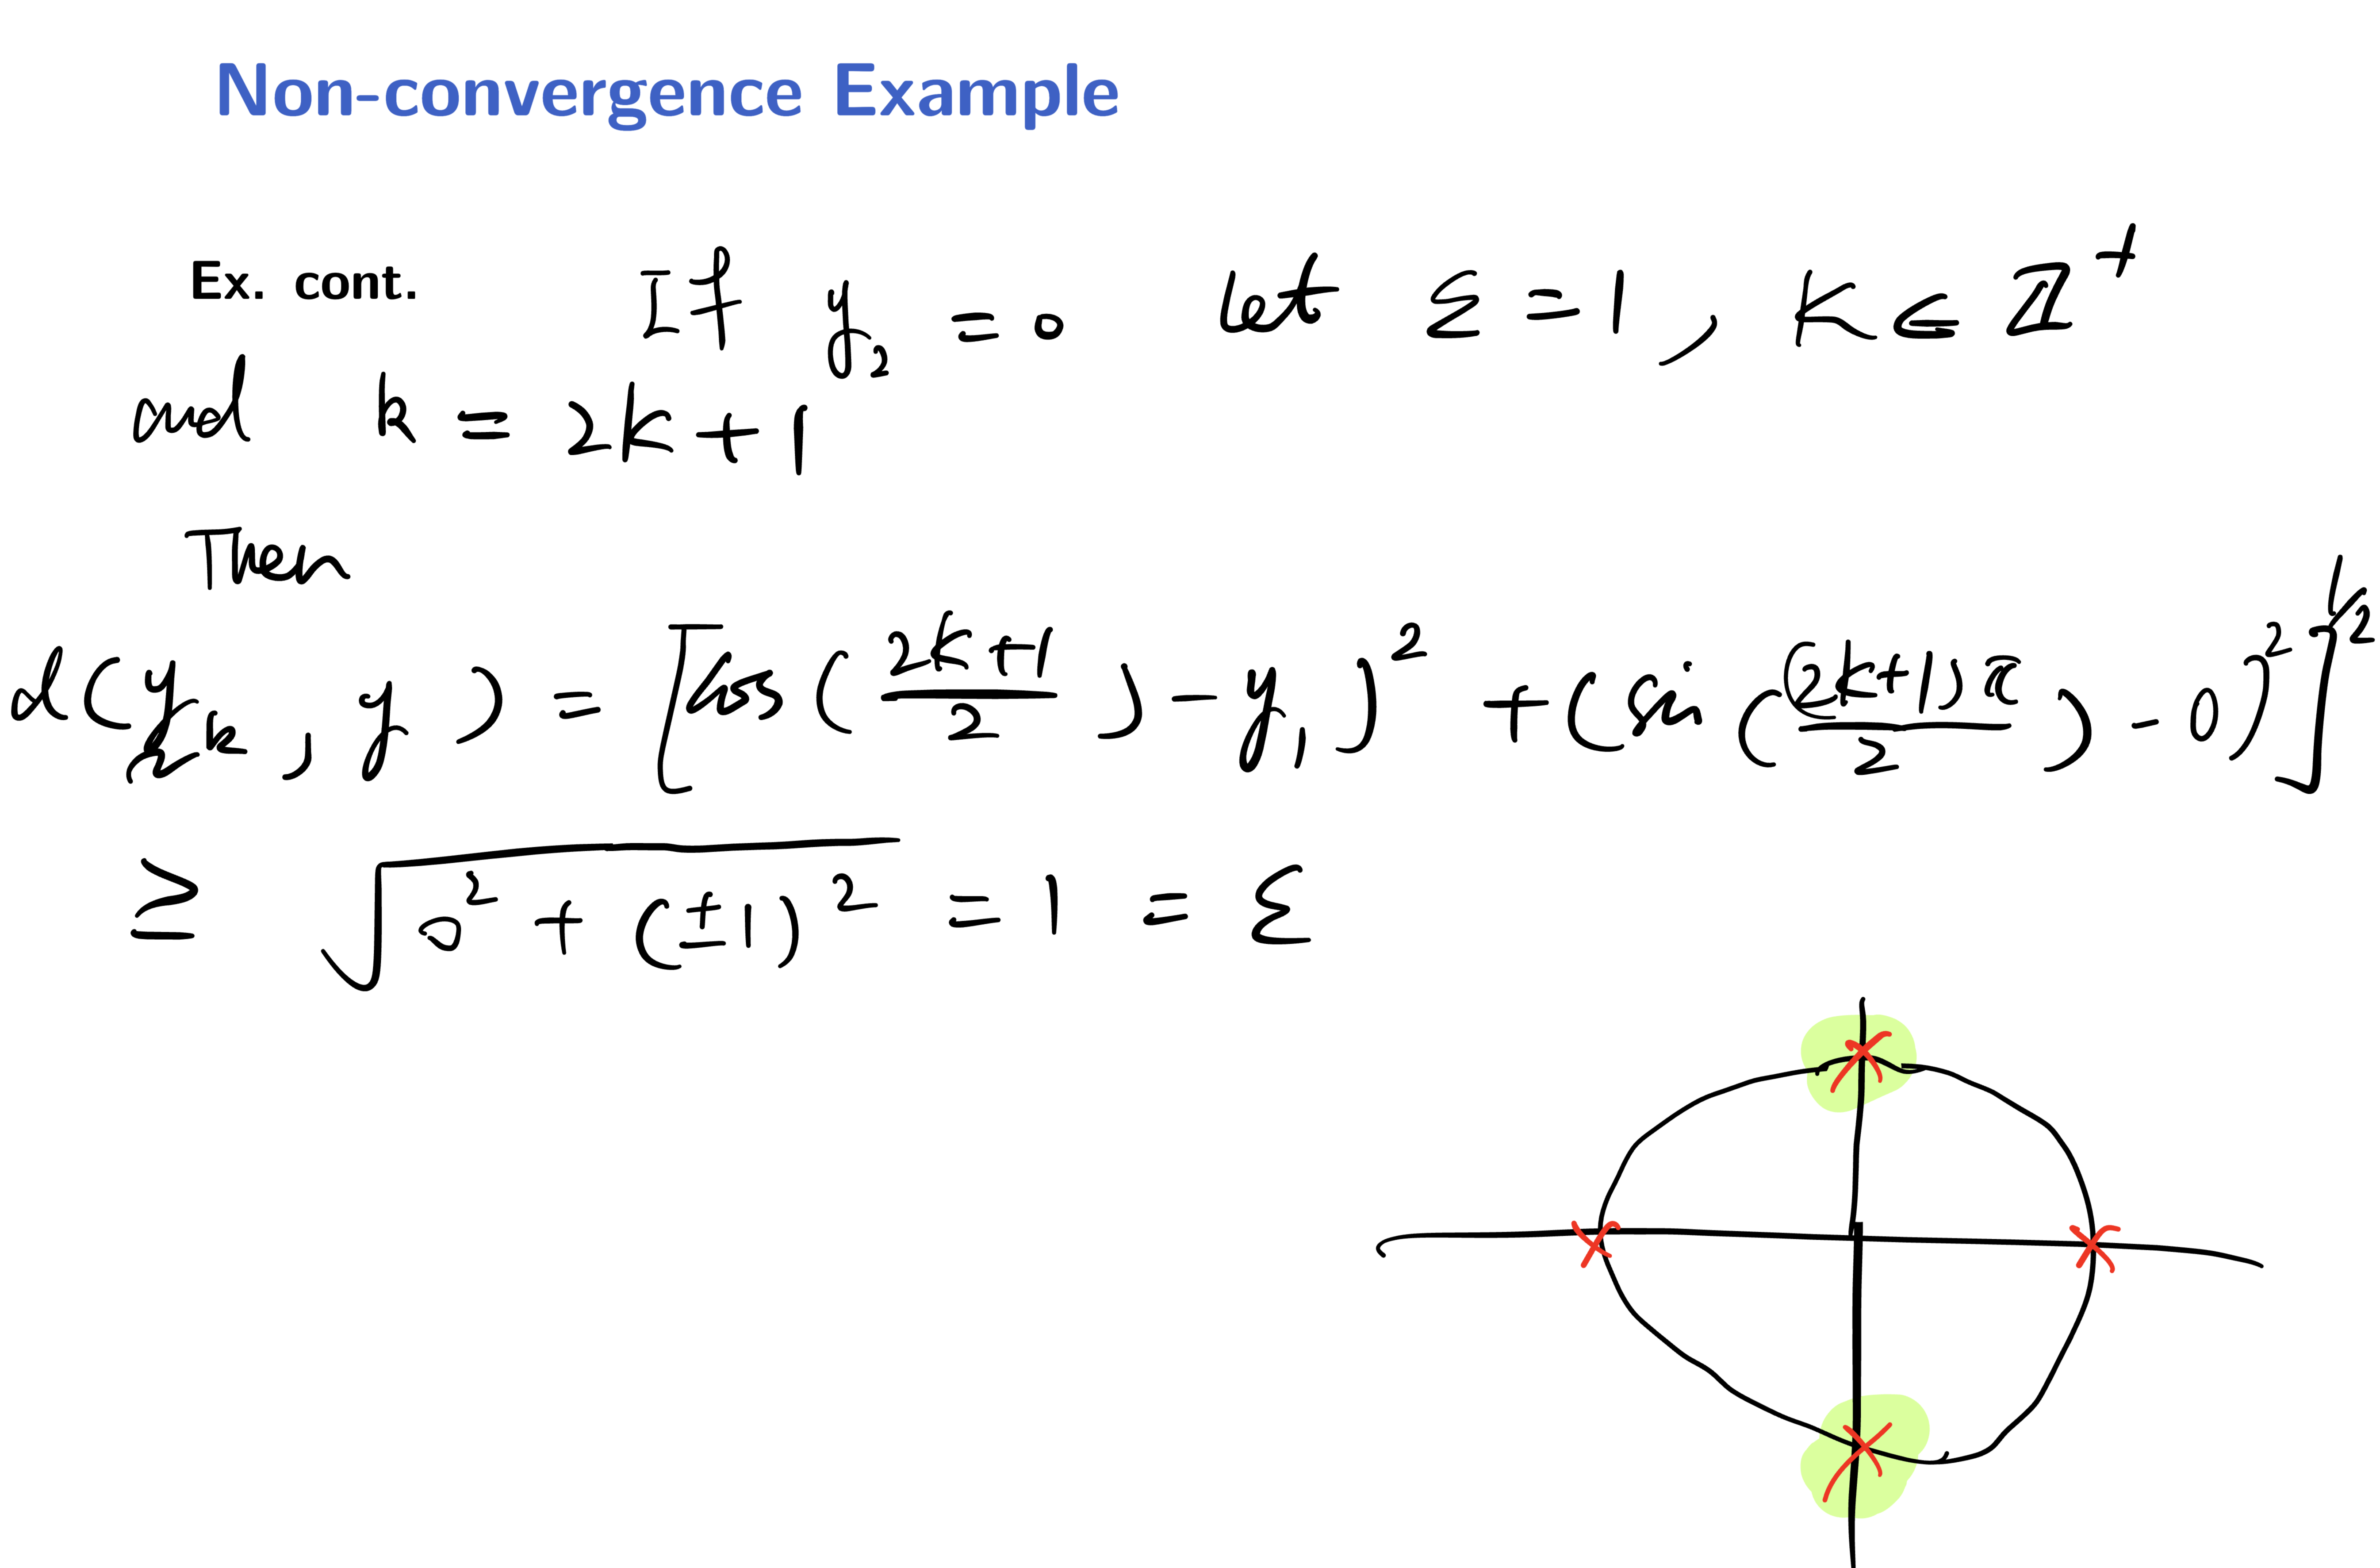 Non-convergence Example
Ex. cont. If y₂ = 0 let ε = 1, K ∈ Z⁺
and k = 2K+1
Then
d(y_k, y) = [(cos(2K+1/2) - y₁)² + (sin((2K+1)π/2) - 0)²]^{1/2}
≥ √(0² + (±1)²) = 1 = ε